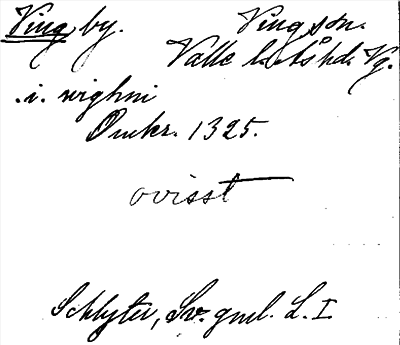 Ving by. Ving sn.
Valle hd. Vg.
.i. wighni
Omkr. 1325.
ovisst
Schlyter, Sv. gml. L. I